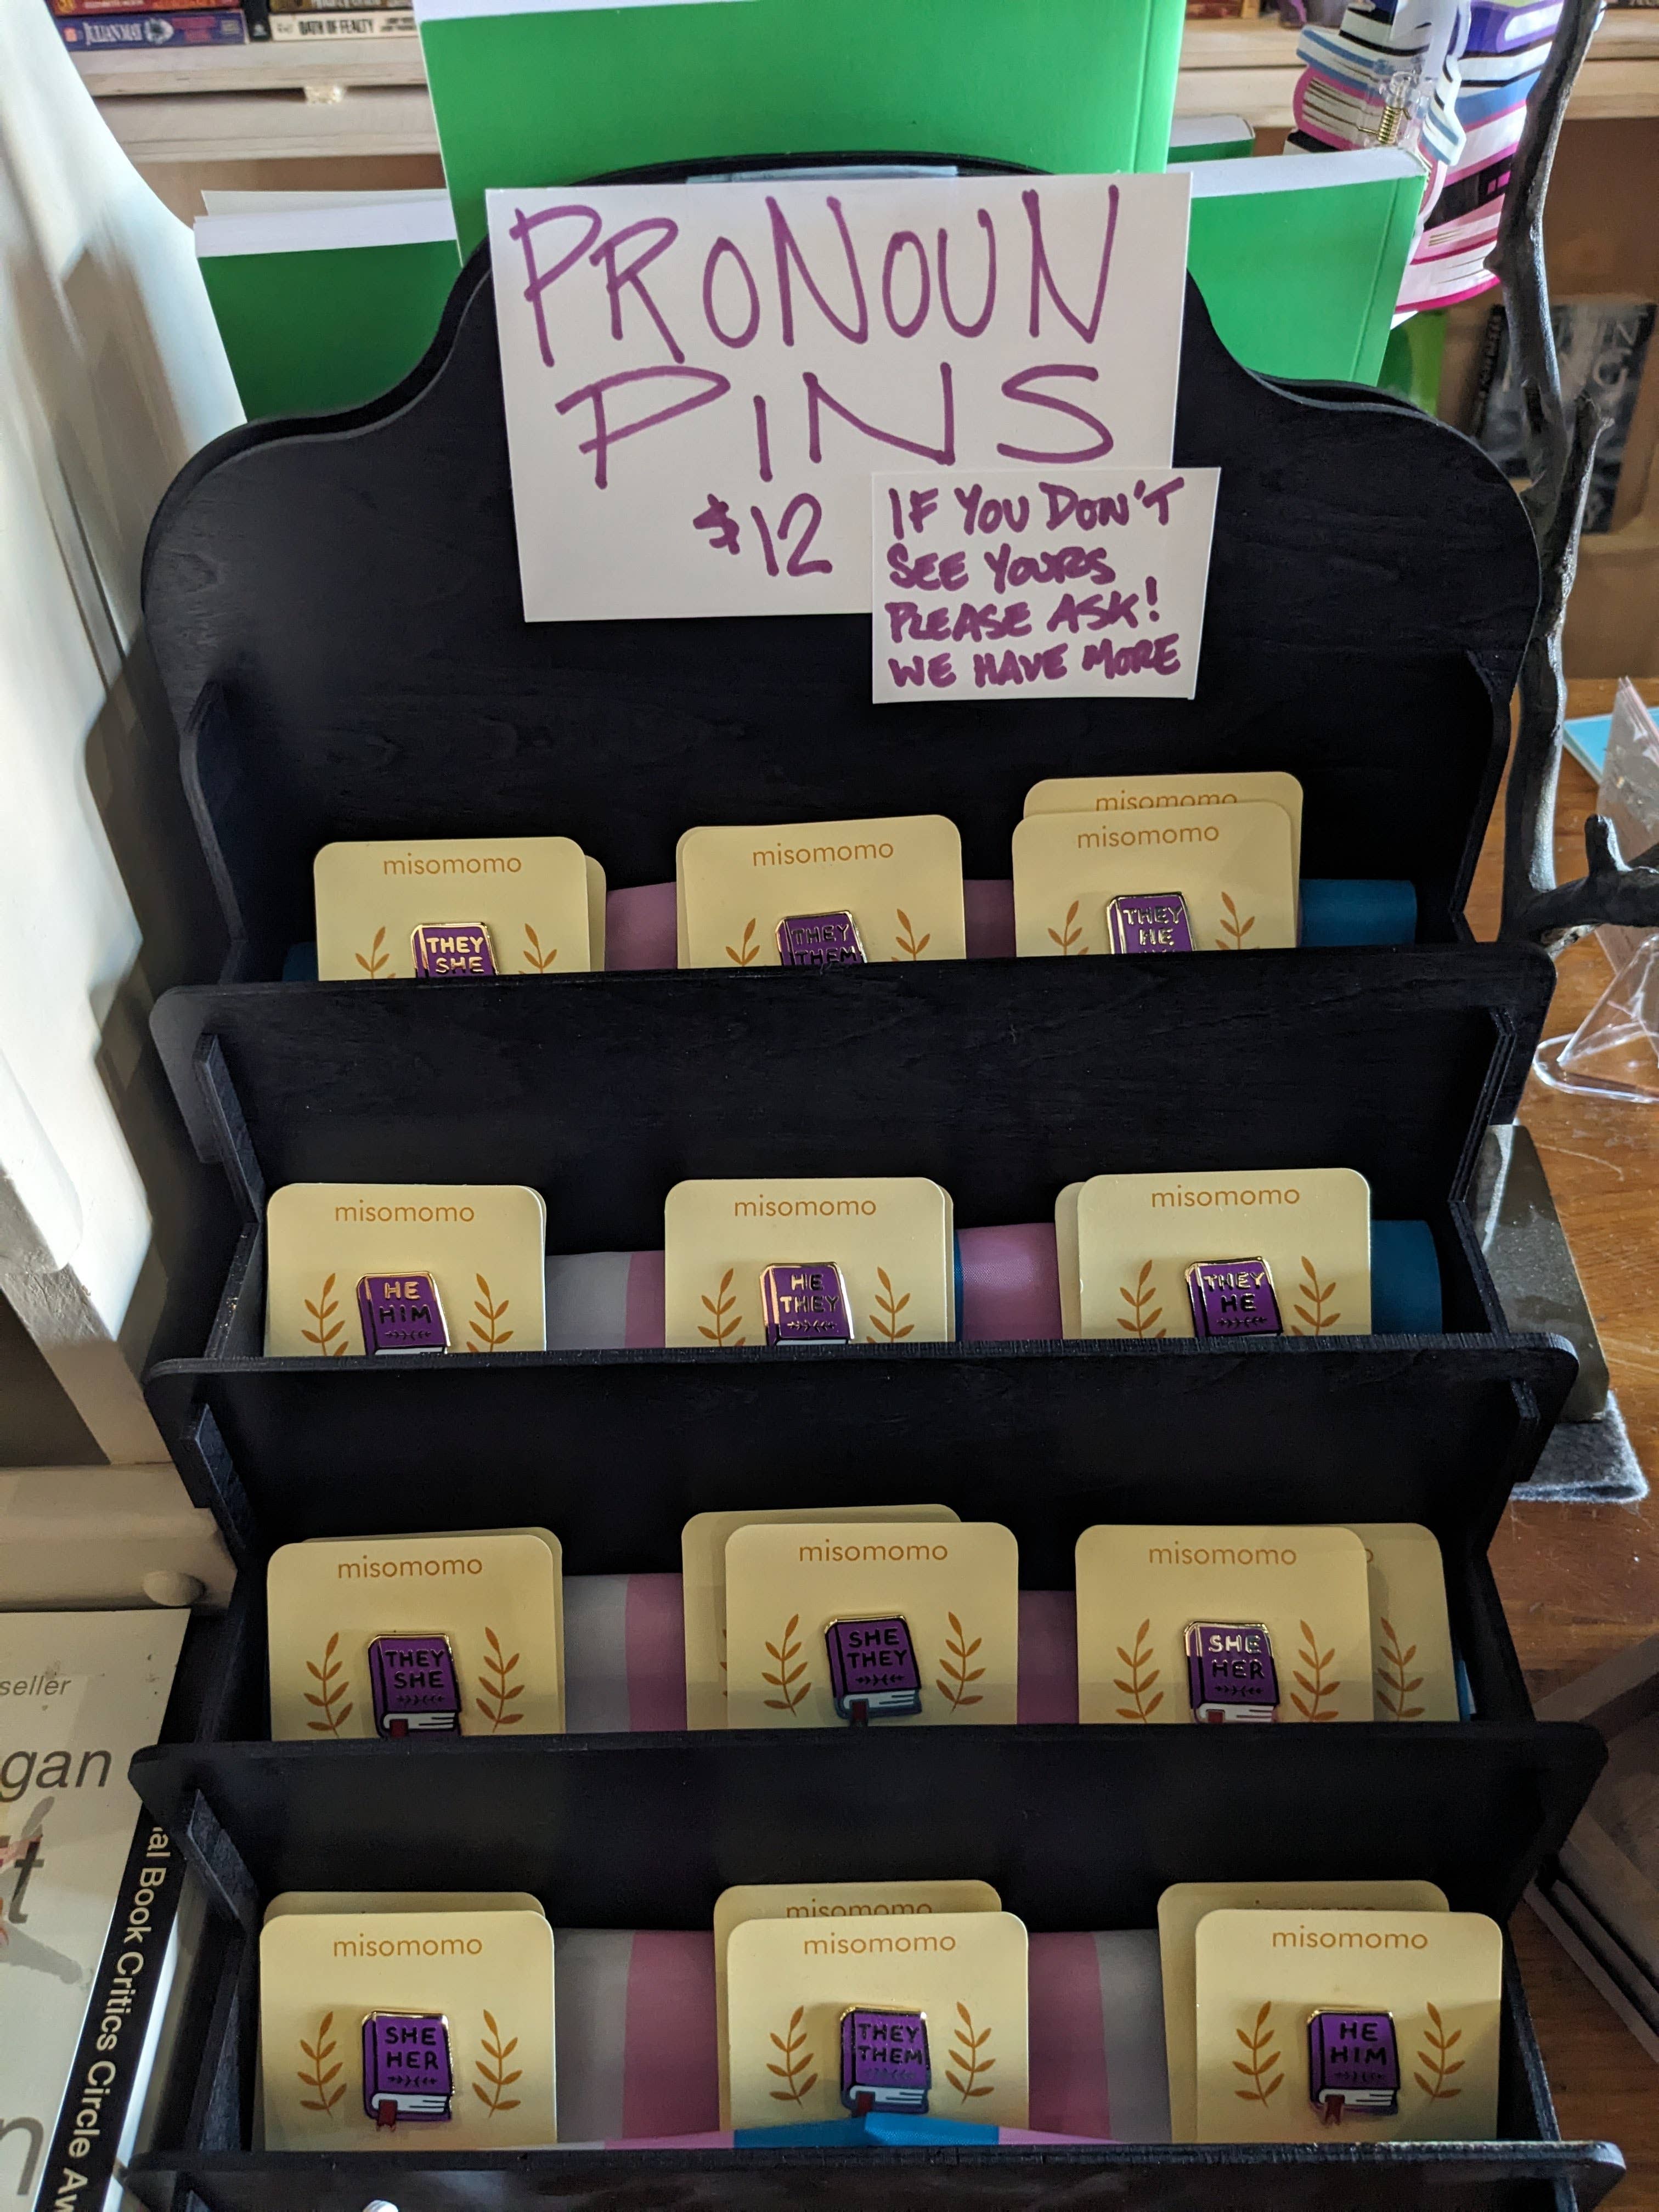 JULIAN MAY
OATH OF FEALTY
PRONOUN
PINS
$12
IF YOU DON'T
SEE YOURS
PLEASE ASK!
WE HAVE MORE
misomomo
THEY
SHE
misomomo
THEY
THEM
misomomo
misomomo
THEY
HE
misomomo
HE
HIM
misomomo
HE
THEY
misomomo
THEY
HE
misomomo
THEY
SHE
misomomo
SHE
THEY
misomomo
SHE
HER
misomomo
SHE
HER
misomomo
misomomo
THEY
THEM
misomomo
HE
HIM
seller
gan
al Book Critics Circle Aw